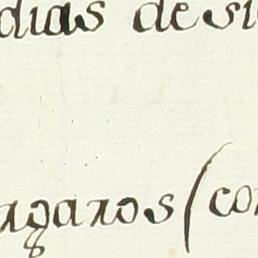 dias de si
agaros (con